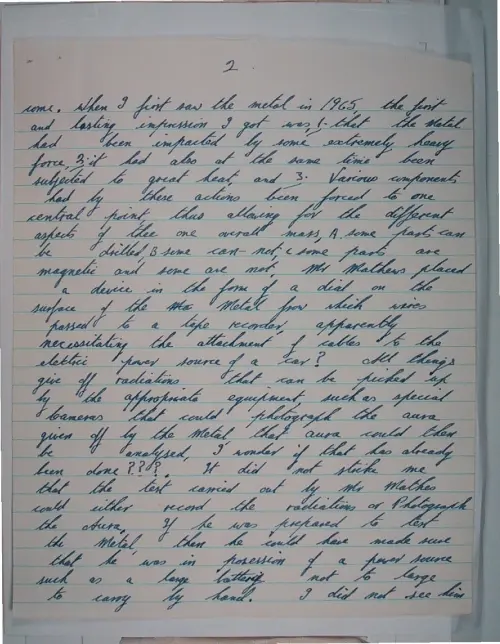 2
come. When I first saw the metal in 1965 the first
and lasting impression I got was, 1. that the Metal
had been impacted by some extremely heavy
force, 2. it had also at the same time been
subjected to great heat, and 3. Various components
had by these actions been forced to one
central point, thus allowing for the different
aspects of thee one overall mass, A. some parts can
be drilled, B some can- not, C some parts are
magnetic and some are not. Mr Mathews placed
a device in the form of a dial on the
surface of the Metal from which wires
passed to a tape recorder, apparently
neccesitating the attachment of cables to the
elektric power source of a car? All things
give off radiations that can be picked up
by the appropriate equipment, such as special
Cameras that could photograph the aura
given off by the Metal, that aura could then
be analysed, I wonder if that has already
been done???. It did not strike me
that the test carried out by Mr Mathes
could either record the radiations or Photograph
the Aura. If he was prepared to test
the Metal, then he could have made sure
that he was in posession of a power source
such as a large battery not to large
to carry by hand. I did not see him